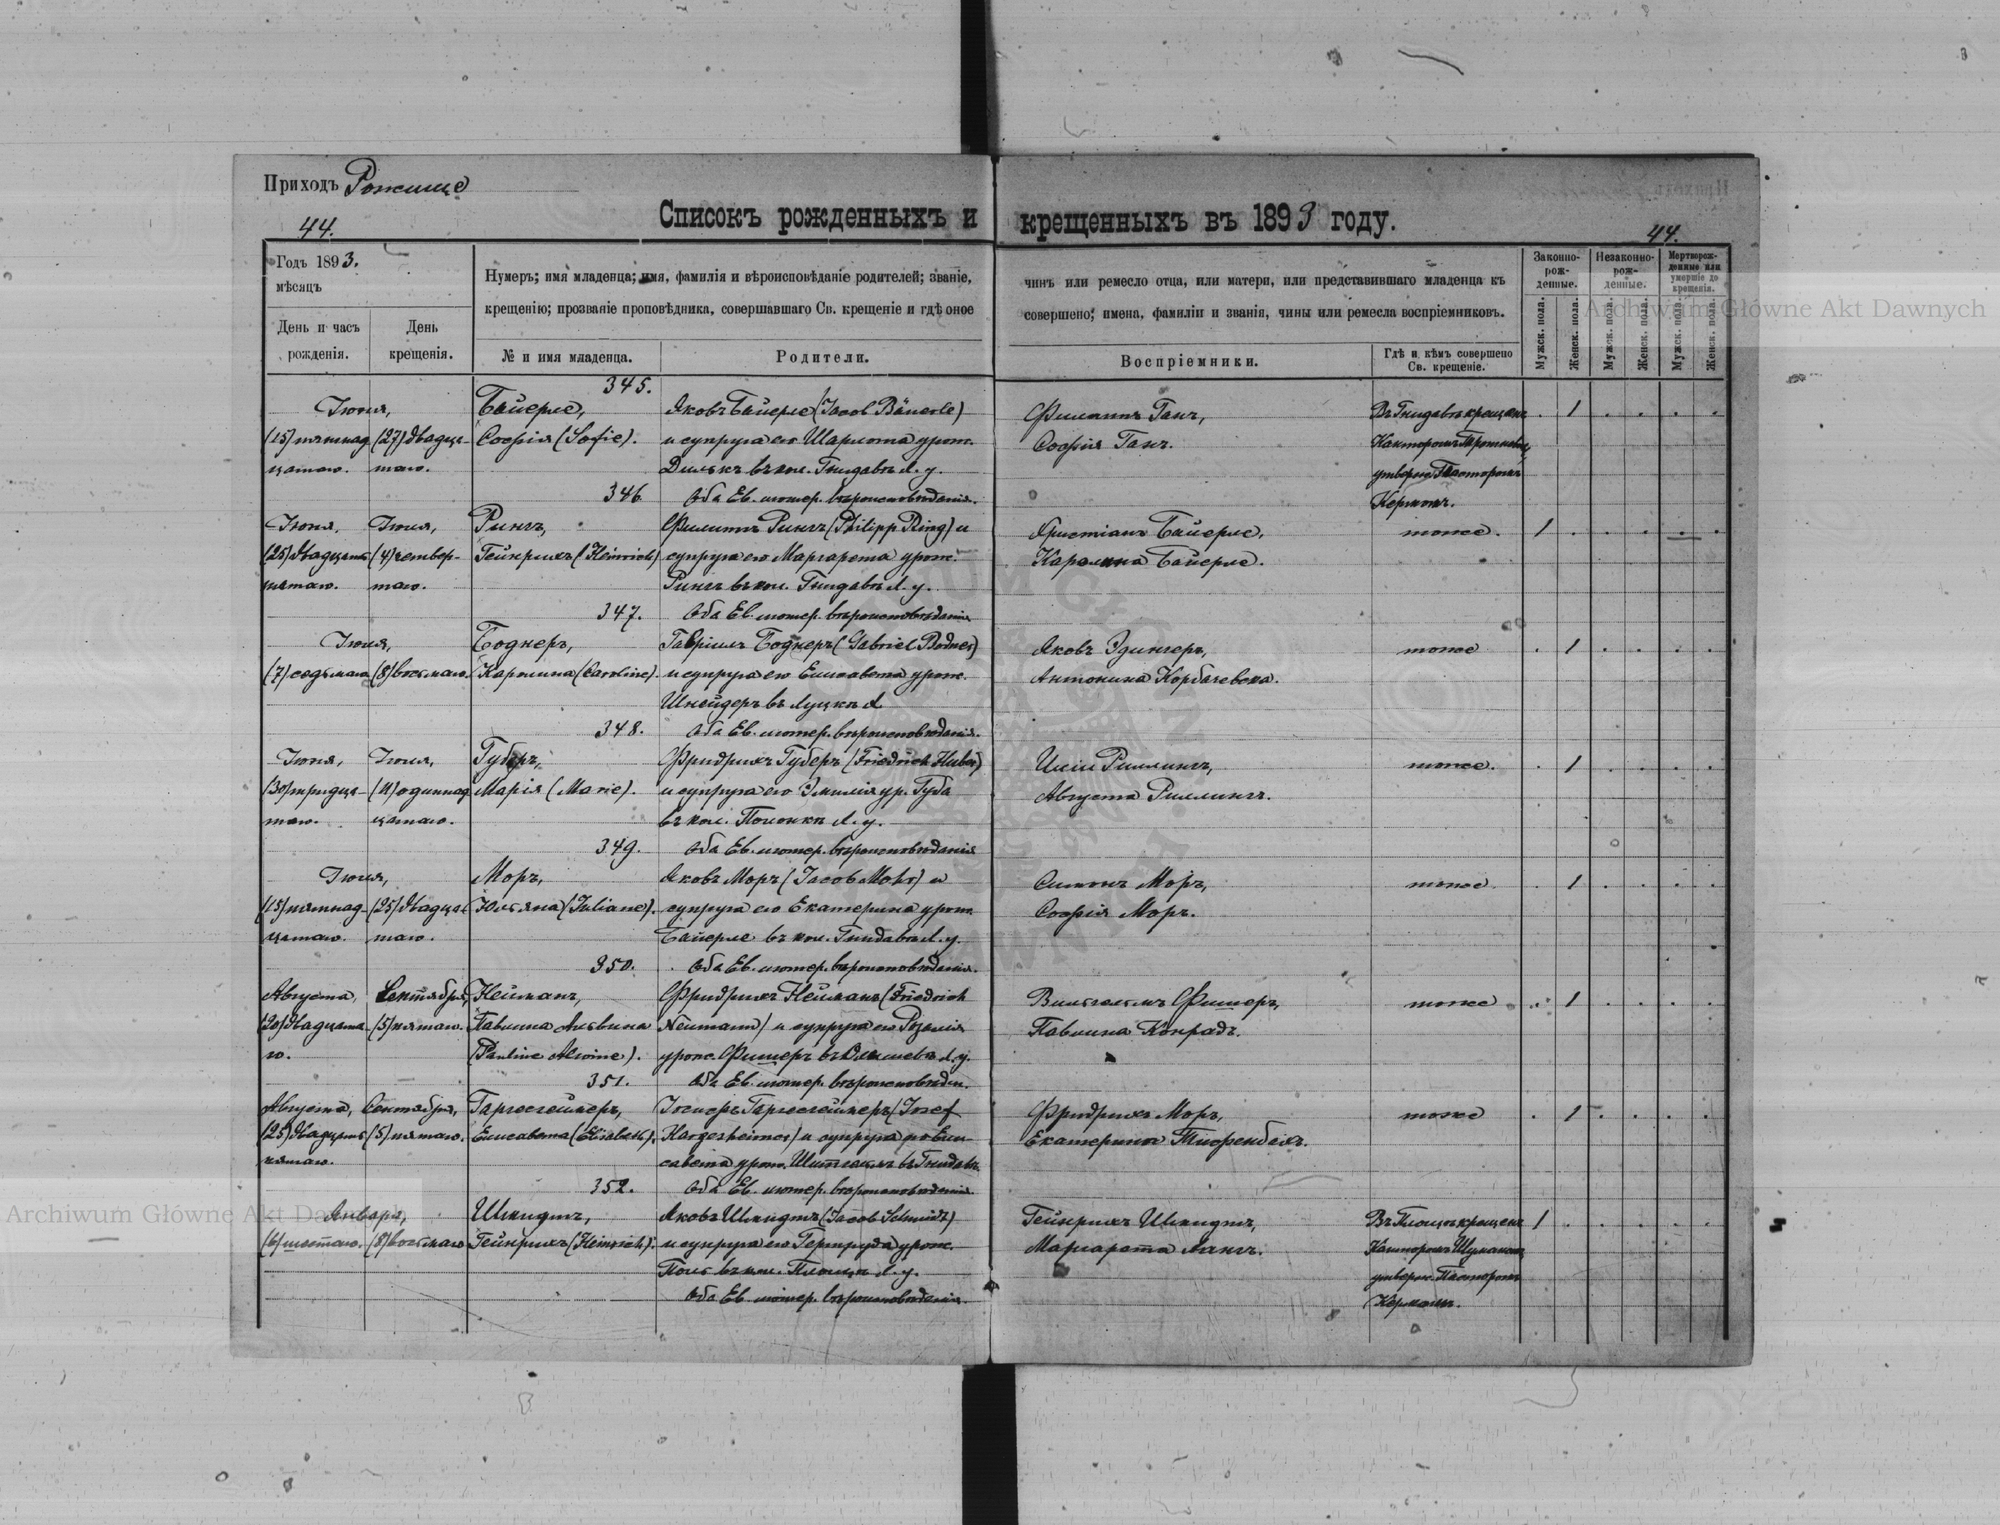 Приходъ Рожище
44.
Списокъ рожденныхъ и крещенныхъ въ 1893 году.
44.
Годъ 1893.
мѣсяцъ
День и часъ рожденія.
День крещенія.
Нумеръ; имя младенца; имя, фамилія и вѣроисповѣданіе родителей; званіе,
крещенію; прозваніе проповѣдника, совершавшаго Св. крещеніе и гдѣ оное
№ и имя младенца.
Родители.
чинъ или ремесло отца, или матери, или представившаго младенца къ
совершено; имена, фамиліи и званія, чины или ремесла воспріемниковъ.
Воспріемники.
Гдѣ и кѣмъ совершено
Св. крещеніе.
Законно-
рож-
денные.
Незаконно-
рож-
денные.
Мертворож-
денные или
умершіе до
крещенія.
Мужск. пола.
Женск. пола.
Мужск. пола.
Женск. пола.
Мужск. пола.
Женск. пола.
Archiwum Główne Akt Dawnych
345.
Іюня, Байерле, Яковъ Байерле (Jacob Bäuerle) Филиппъ Ганъ, Въ Гнидавѣ крещенъ 1
(15) пятнад (27) двадца- Софія (Sofie). и супруга его Шарлота урож. Софія Ганъ. Канторомъ
цатаго. таго. въ кол. Гнидавѣ Л. у. утвержд. Пасторомъ
346 Оба Ев. лютер. вѣроисповѣданія. Керномъ.
Іюня, Іюля, Рингъ, Филиппъ Рингъ (Philipp Ring) и Христіанъ Байерле, тоже. 1
(25) двадцать (4) четвер- Гейнрихъ (Heinrich) супруга его Маргарета урож. Каролина Байерле.
пятаго. таго. Рингъ въ кол. Гнидавѣ Л. у.
347. Оба Ев. лютер. вѣроисповѣданія
Іюля, Боднеръ, Гавріилъ Боднеръ (Gabriel Bodner) Яковъ Эдингеръ, тоже 1
(7) седьмаго (8) восьмаго. Каролина (Caroline). и супруга его Елисавета урож. Антонина
Шнейдеръ въ Луцкѣ
348. Оба Ев. лютер. вѣроисповѣданія.
Іюня, Іюля, Губеръ, Фридрихъ Губеръ (Friedrich Huber) Риллингъ, тоже. 1
(30) тридца (11) одиннад Марія (Marie). и супруга его Эмилія ур. Губа Августа Риллингъ.
таго. цатаго. въ кол. Полонкѣ Л. у.
349. Оба Ев. лютер. вѣроисповѣданія
Іюля, Моръ, Яковъ Моръ (Jacob Mohr) и Симонъ Моръ, тоже. 1
(15) пятнад- (25) двадца- Юльяна (Juliane). супруга его Екатерина урож. Софія Моръ.
цатаго. таго. Байерле въ кол. Гнидавѣ Л. у.
350. Оба Ев. лютер. вѣроисповѣданія.
Августа, Сентября, Нейманъ, Фридрихъ Нейманъ (Friedrich Вильгельмъ Фишеръ, тоже 1
(20) двадцата (5) пятаго. Павлина Альвина Neumann) и супруга его Розалія Павлина Конрадъ.
го. (Pauline Alwine). урож. Фишеръ въ Л. у.
351. Оба Ев. лютер. вѣроисповѣдан.
Августа, Сентября, Гаргесгеймеръ, Іосифъ Гаргесгеймеръ (Josef Фридрихъ Моръ, тоже 1
(25) двадцать (5) пятаго. Елисавета (Elisabeth). Hargesheimer) и супруга его Ели- Екатерина
пятаго. савета урож. въ Гнидавѣ
352. Оба Ев. лютер. вѣроисповѣданія.
Января, Шмидтъ, Яковъ Шмидтъ (Jacob Schmidt) Гейнрихъ Шмидтъ, крещенъ 1
(6) шестаго. (8) восьмаго Гейнрихъ (Heinrich). и супруга его Гертруда урож. Маргарета Лангъ. Канторомъ
въ кол. Л. у. утвержд. Пасторомъ
Оба Ев. лютер. вѣроисповѣданія. Керномъ.
Archiwum Główne Akt Dawnych